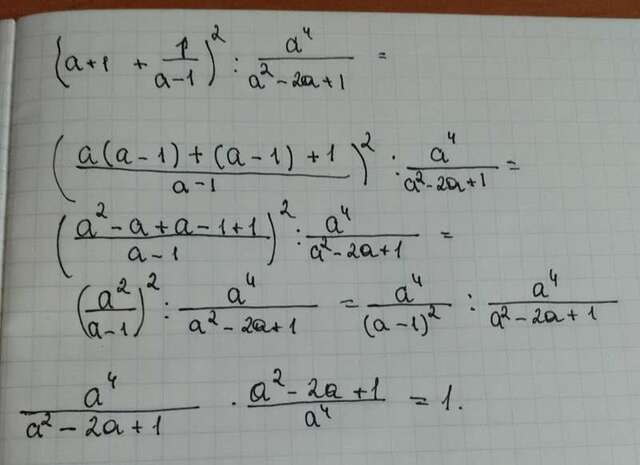 (a+1 + 1/(a-1))² : a⁴/(a²-2a+1) =
((a(a-1)+(a-1)+1)/(a-1))² : a⁴/(a²-2a+1) =
((a²-a+a-1+1)/(a-1))² : a⁴/(a²-2a+1) =
(a²/(a-1))² : a⁴/(a²-2a+1) = a⁴/(a-1)² : a⁴/(a²-2a+1)
a⁴/(a²-2a+1) · (a²-2a+1)/a⁴ = 1.